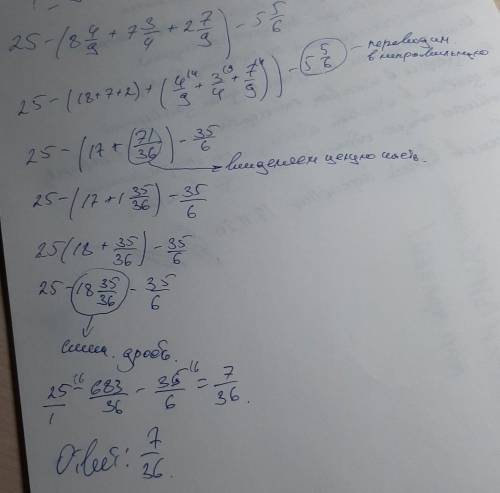 25 - (8 4/9 + 7 3/4 + 2 7/9) - 5 5/6
25 - ((8+7+2) + (4/9 + 3/4 + 7/9)) - 5 5/6 - переводим в неправильную
25 - (17 + 71/36) - 35/6
выделяем целую часть.
25 - (17 + 1 35/36) - 35/6
25 (18 + 35/36) - 35/6
25 - 18 35/36 - 35/6
смеш. дробь.
25/1 - 683/36 - 35/6 = 7/36.
Ответ: 7/36.